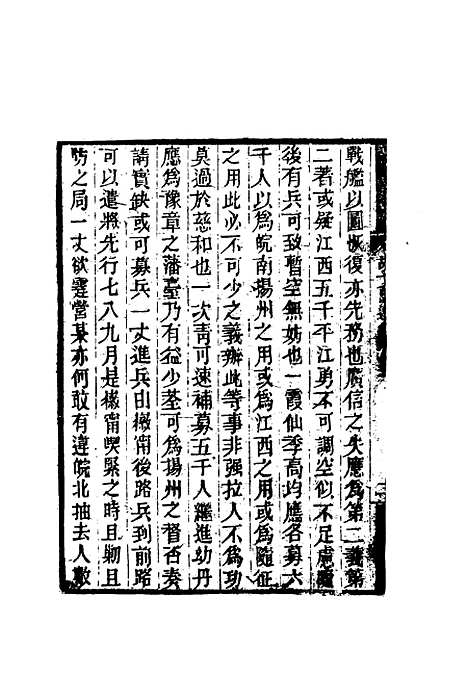 戰艦以圖恢復亦先務也廣信之失應為第二義第
二著或疑江西五千平江勇不可調空似不足慮
後有兵可致暫空無妨也一霞仙季高均應各募六
千人以為皖南揚州之用或為江西之用或為隨征
之用此必不可少之義辦此等事非强拉人不為功
莫過於慈和也一次青可速補募五千人繼進幼丹
應為豫章之藩臺乃有益少荃可為揚州之督否奏
請實缺或可募兵一丈進兵由徽甯後路兵到前路
可以遣將先行七八九月是徽甯喫緊之時且剿且
防之局一丈欲霆營某亦何敢有違皖北抽去人數